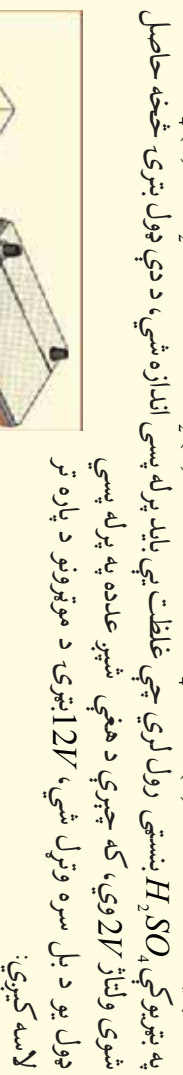 په بتريو کې H₂SO₄ بنسټی رول لري چې غلظت يې بايد پرله پسې اندازه شي، د دې ډول بترۍ څخه حاصل
شوی ولتاژ 2V وي، که چېرې د هغې شپږ عدده په پرله پسې
ډول يو د بل سره وتړل شي، 12V بترۍ د موټرونو د پاره تر
لاسه کيږي: